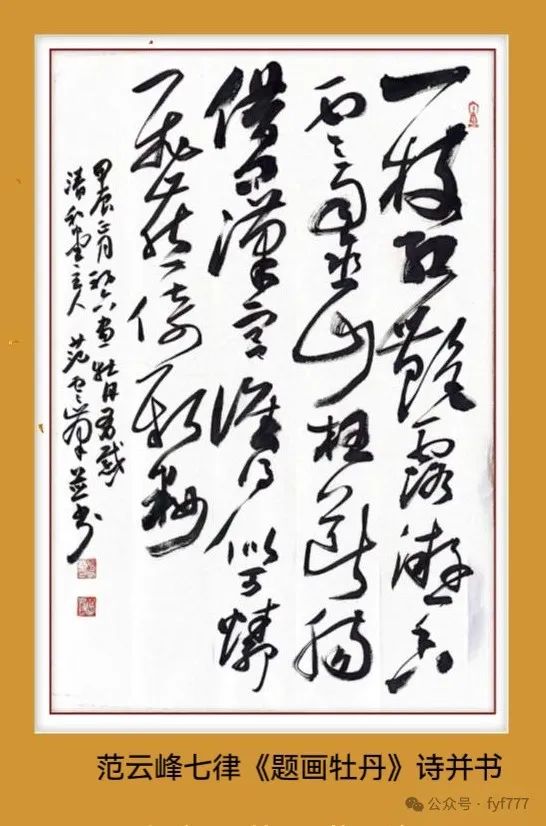 一枝红艷露凝香
云雨巫山枉断肠
借问漢宫谁得似可憐
飛燕倚新妝
甲辰正月初六画牡丹有感
清和堂主人 范云峰并书
范云峰七律《题画牡丹》诗并书
公众号·fyf777